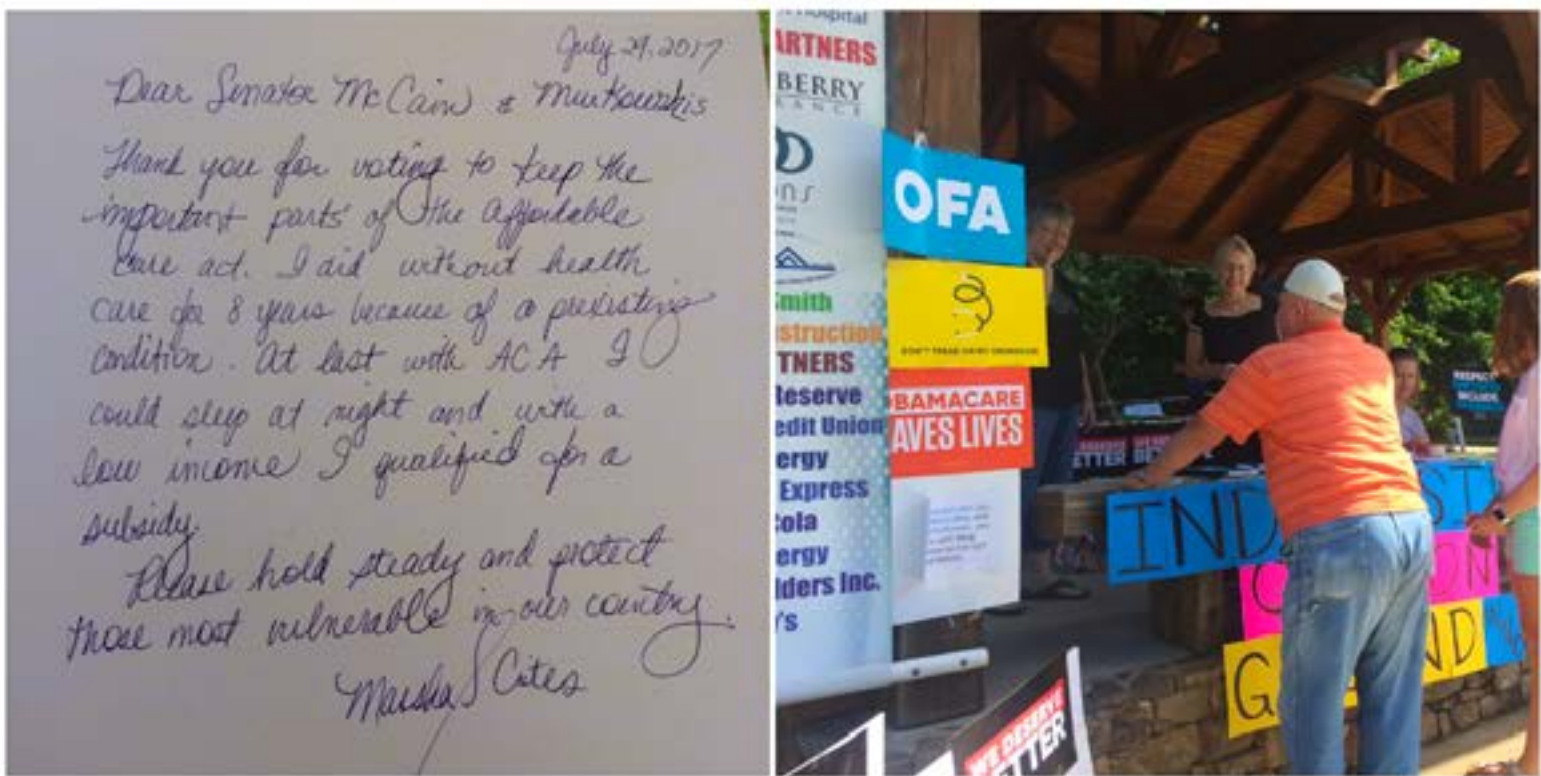 July 29, 2017
Dear Senator McCain & Murkowskis
Thank you for voting to keep the
important parts of the Affordable
care act. I did without health
care for 8 years because of a prexisting
condition. At last with ACA I
could sleep at night and with a
low income I qualified for a
subsidy.
Please hold steady and protect
those most vulnerable in our country.
Marsha Cites
Hospital
ARTNERS
BERRY
RANCE
ons
mith
struction
TNERS
Reserve
edit Union
ergy
Express
ola
ergy
lders Inc.
's
OFA
BAMACARE
AVES LIVES
ETTER
RESPECT
INCLUDE
IND
ST
ON
G
ND
WE DESERVE
ETTER